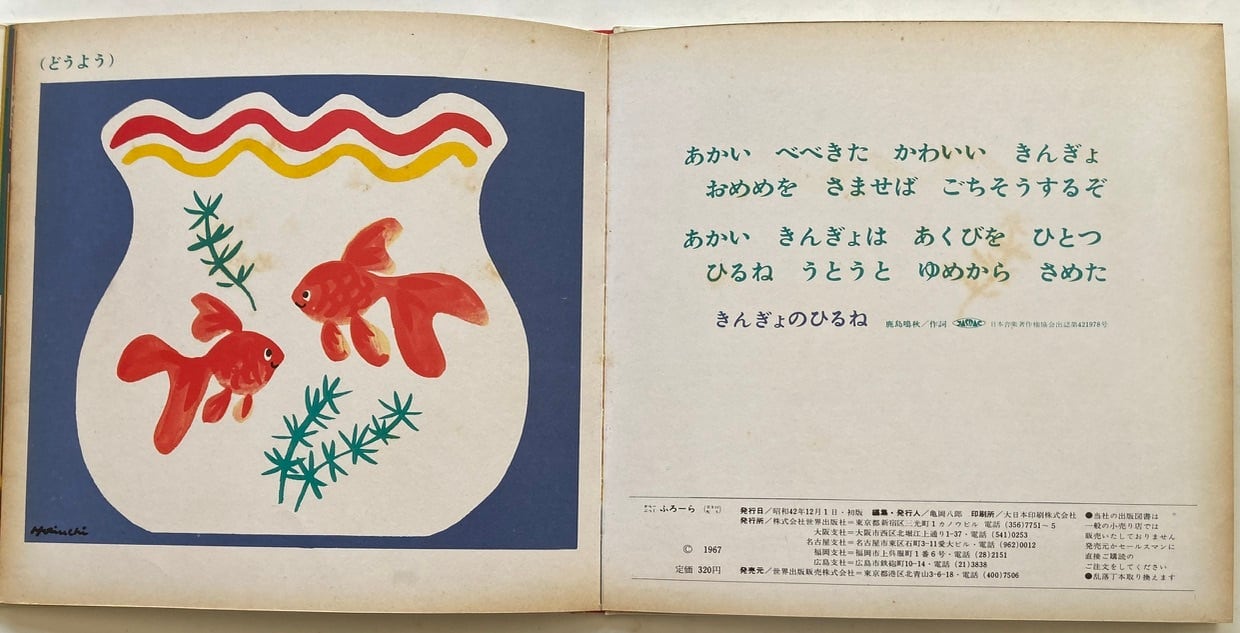 (どうよう)
Horiuchi
あかい べべきた かわいい きんぎょ
おめめを さませば ごちそうするぞ
あかい きんぎょは あくびを ひとつ
ひるね うとうと ゆめから さめた
きんぎょのひるね 鹿島鳴秋/作詞 JASRAC 日本音楽著作権協会出認第421978号
ふろーら 発行日/昭和42年12月1日・初版 編集・発行人/亀岡八郎 印刷所/大日本印刷株式会社
発行所/株式会社世界出版社=東京都新宿区三光町1カノウビル 電話 (356)7751〜5
大阪支社=大阪市西区北堀江上通り1-37・電話 (541)0253
名古屋支社=名古屋市東区石町3-11愛大ビル・電話 (962)0012
福岡支社=福岡市上呉服町1番6号・電話 (28)2151
広島支社=広島市鉄砲町10-14・電話 (21)3838
発売元/世界出版販売株式会社=東京都港区北青山3-6-18・電話 (400)7506
© 1967
定価 320円
●当社の出版図書は
一般の小売り店では
販売いたしておりません
発売元かセールスマンに
直接ご購読の
ご注文をしてください
●乱落丁本取り換えます